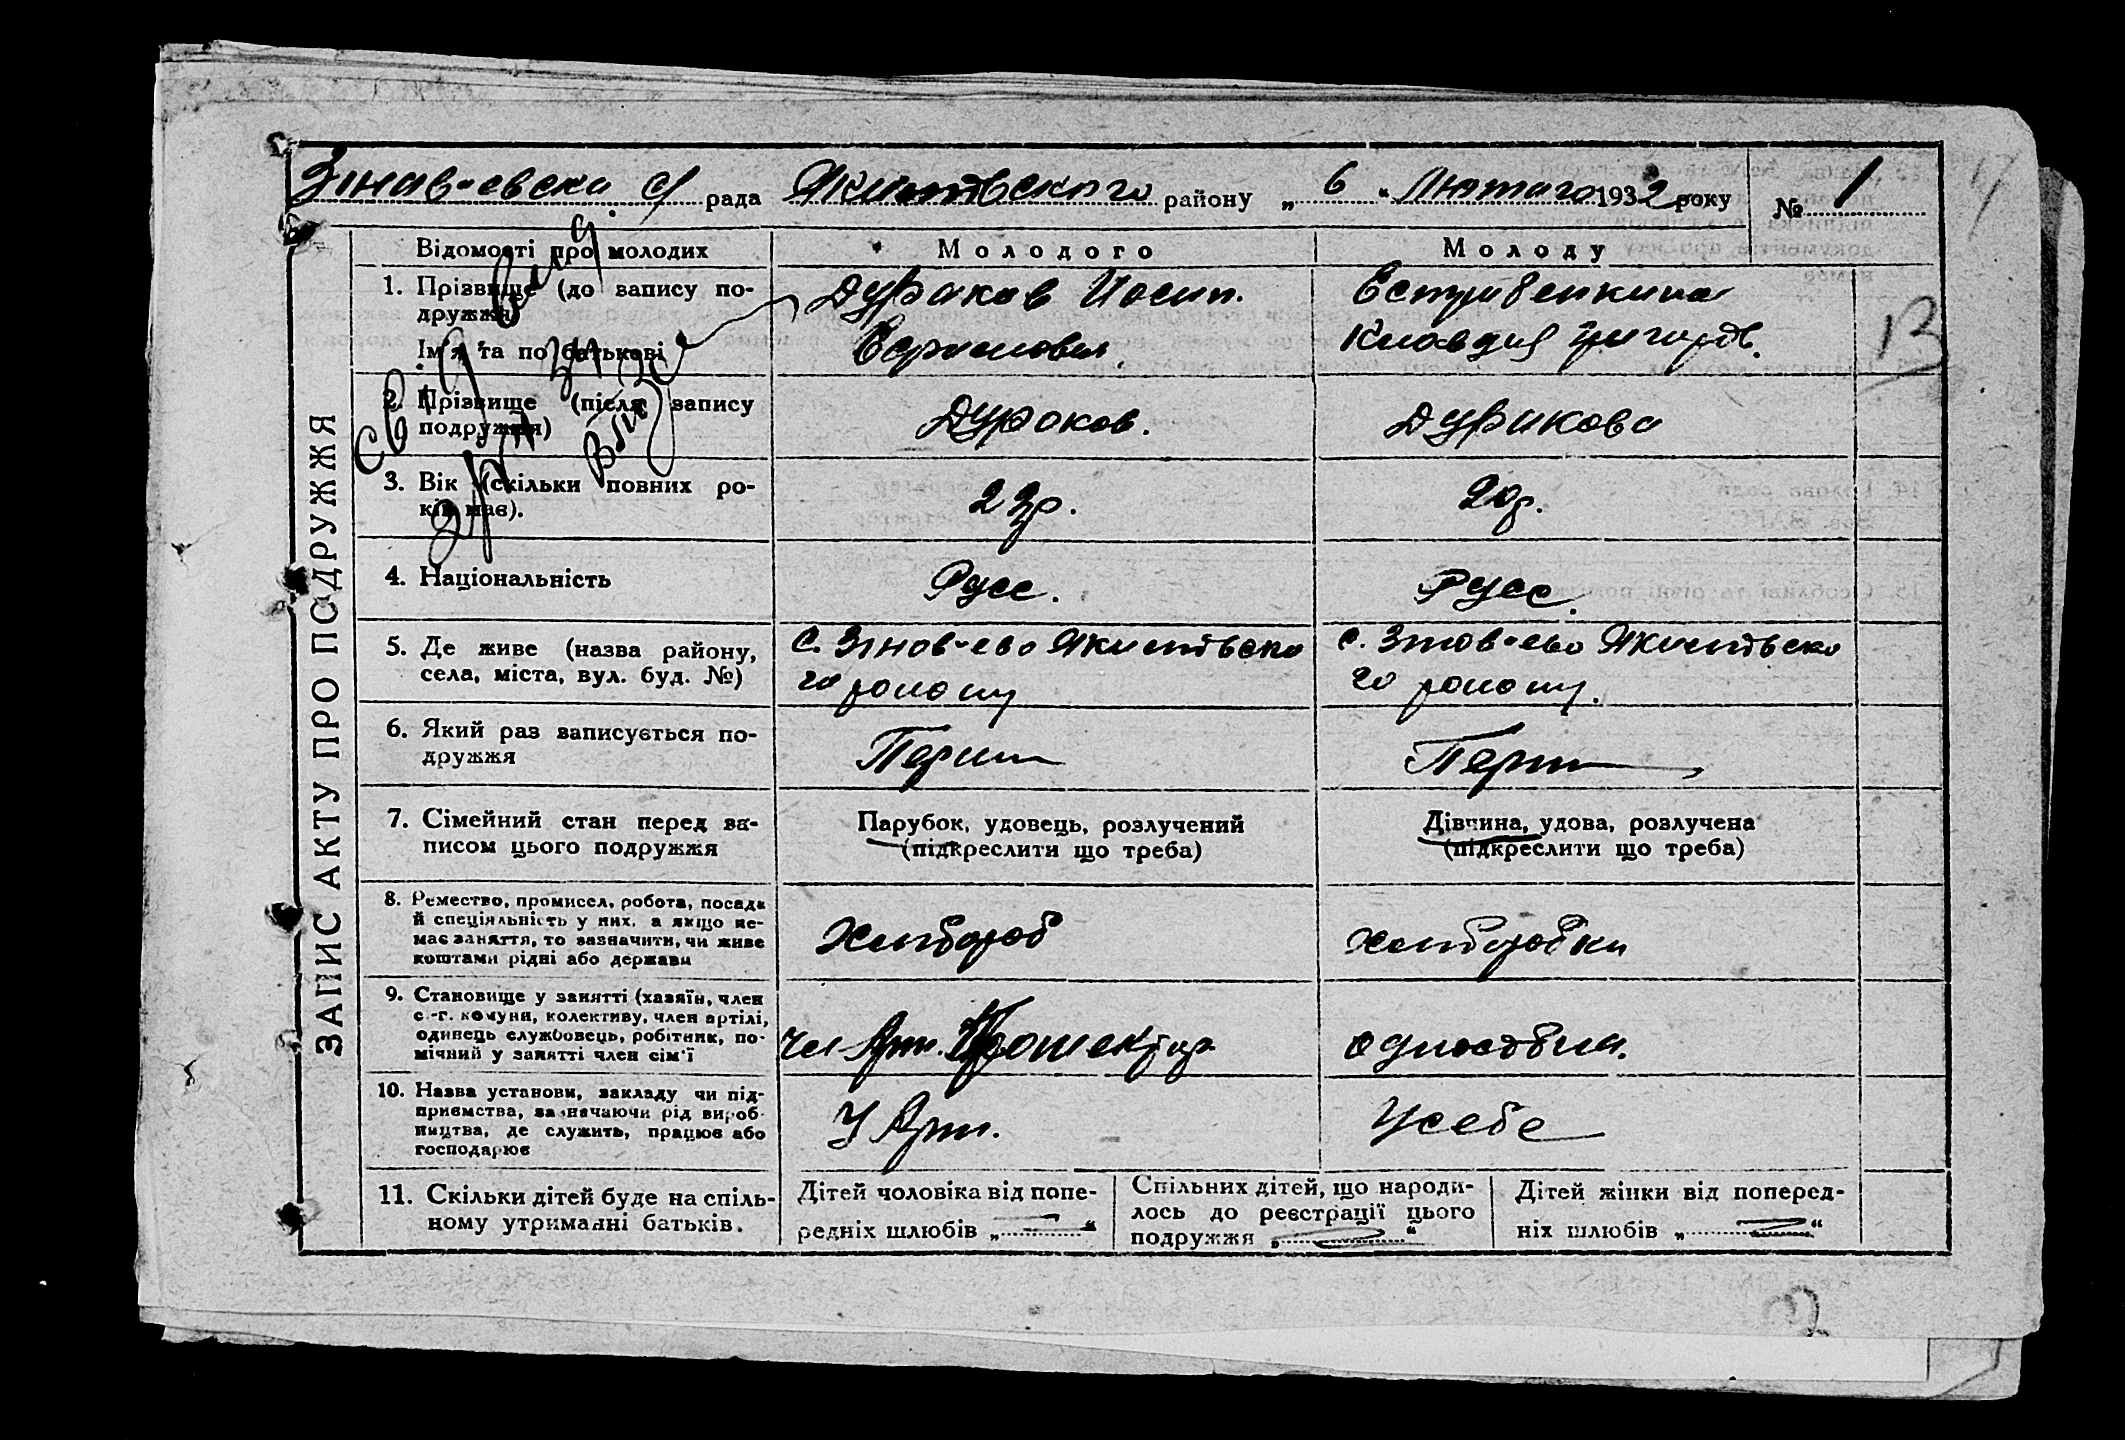 рада Якимовського району „ 6 “ Лютого 1932 року № 1
ЗАПИС АКТУ ПРО ПОДРУЖЖЯ
Відомості про молодих
Молодого
Молоду
1. Прізвище (до запису по-
дружжя)
Ім'я та по батькові
Дураков Иосип.
Клавдия Григоров.
2. Прізвище (після запису
подружжя)
Дураков.
Дуракова
3. Вік (скільки повних ро-
ків має).
23р.
20р.
4. Національність
Русс.
Русс.
5. Де живе (назва району,
села, міста, вул. буд. №)
с. Зінов-ево Якимовсько
го району
с. Зінов-ево Якимовсько
го району.
6. Який раз записується по-
дружжя
Перши
Перш
7. Сімейний стан перед за-
писом цього подружжя
Парубок, удовець, розлучений
(підкреслити що треба)
Дівчина, удова, розлучена
(підкреслити що треба)
8. Ремество, промисел, робота, посада
й спеціяльність у них, а якщо не-
має заняття, то зазначити, чи живе
коштами рідні або держави
Хлібороб
хліборобка
9. Становище у занятті (хазяїн, член
с.-г. комуни, колективу, член артілі,
одинець службовець, робітник, по-
мічний у занятті член сім'ї
Чл Арт.
одноосібна.
10. Назва установи, закладу чи під-
приємства, зазначаючи рід вироб-
ництва, де служить, працює або
господарює
У Арт.
У себе
11. Скільки дітей буде на спіль-
ному утриманні батьків.
Дітей чоловіка від попе-
редніх шлюбів „ “
Спільних дітей, що народи-
лось до реєстрації цього
подружжя „ “
Дітей жінки від поперед-
ніх шлюбів „ “